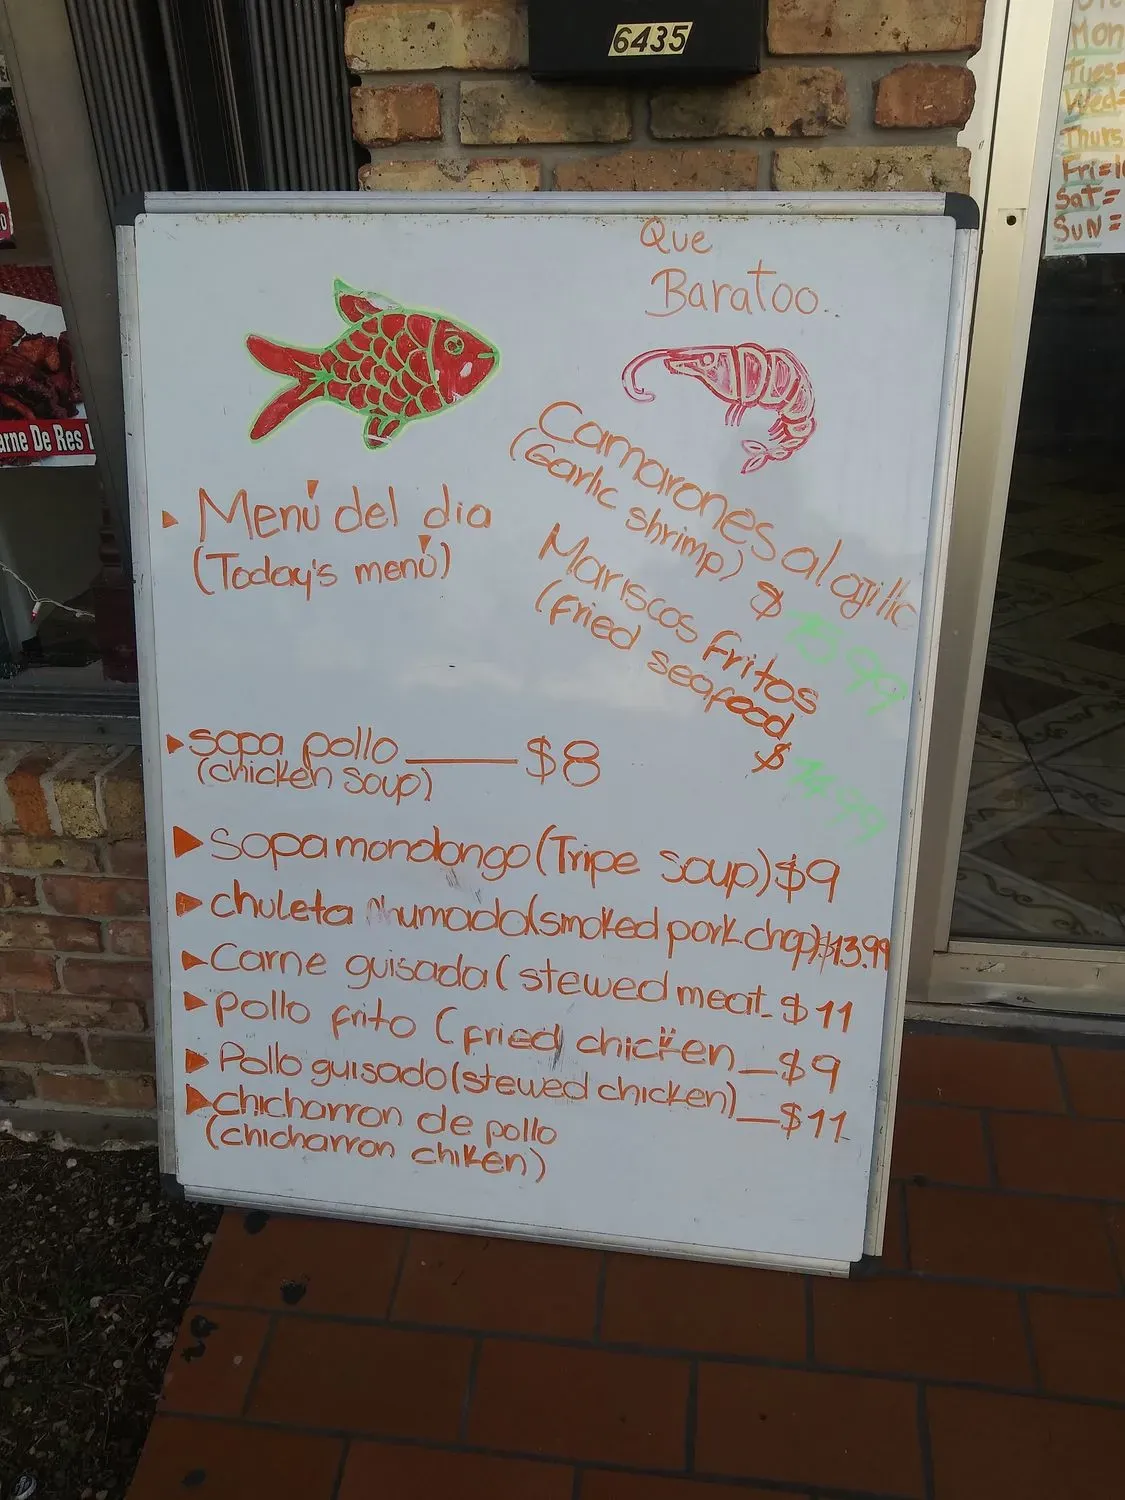 6435
Mon
Tues=
Wed=
Thurs
Fri=1
Sat=
Sun=
arne De Res
Que
Baratoo..
Camarones al ajillo
(Garlic shrimp) $ 13.99
Mariscos Fritos
(Fried seafood
$ 14.99
Menú del dia
(Today's menú)
sopa pollo ____ $8
(chicken soup)
sopa mondongo (Tripe soup) $9
chuleta humada (smoked pork chop) $13.99
Carne guisada ( stewed meat_ $11
pollo frito ( fried chicken_ $9
Pollo guisado (stewed chicken)_ $11
chicharron de pollo
(chicharron chiken)